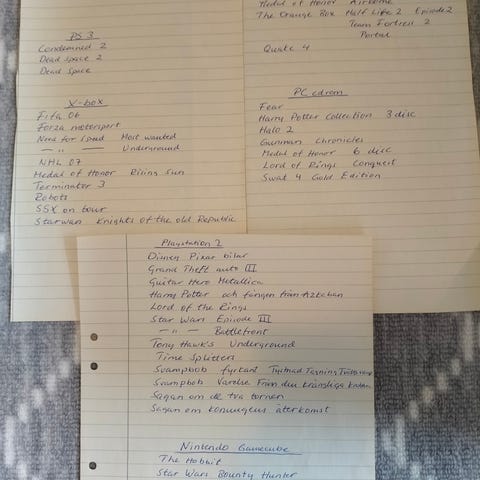 PS 3
Condemned 2
Dead space 2
Dead space
X-box
Fifa 06
Forza motorsport
Need for speed Most wanted
— „ — Underground
NHL 07
Medal of Honor Rising Sun
Terminator 3
Robots
SSX on tour
Starwars Knights of the old Republic
Medal of Honor Airborne
The Orange Box Half Life 2 Episode 2
Team Fortress 2
Portal
Quake 4
PC cdrom
Fear
Harry Potter Collection 3 disc
Halo 2
Gunman Chronicles
Medal of Honor 6 disc
Lord of Rings Conquest
Swat 4 Gold Edition
Playstation 2
Disney Pixar bilar
Grand Theft auto III
Guitar Hero Metallica
Harry Potter och fången från Azkaban
Lord of the Rings
Star Wars Episode III
— „ — Battlefront
Tony Hawk's Underground
Time Splitters
Svampbob fyrkant
Svampbob Varelse Från den
Sagan om de två tornen
Sagan om konungens återkomst
Nintendo Gamecube
The Hobbit
Star Wars Bounty Hunter